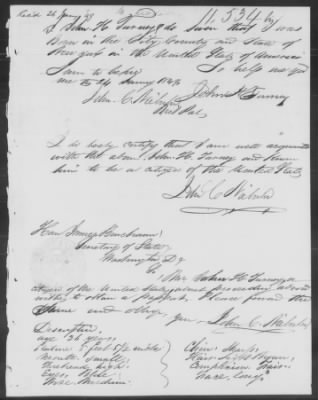 Rec'd 26 Jany '49
11,534
I John H. Turney do swear that I was
Born in the City County and State of
New York in the United States of America
So help me God
Sworn to before
me the 24 January 1849
John H Turney
John C.
I do hereby certify that I am well acquainted
with the above John H. Turney and know
him to be a citizen of the United States
John C
Hon James Buchanan
Secretary of State
Washington D.C.
Sir
Mr John H Turney a
citizen of the United States about proceeding abroad
wishes to obtain a Passport. Please forward the
Same and oblige
yours John C
Description
age 26 years
Stature 5 feet
Mouth small
Forehead high
Eyes Blue
Nose Medium
Chin
Hair
Complexion Fair
Face Long